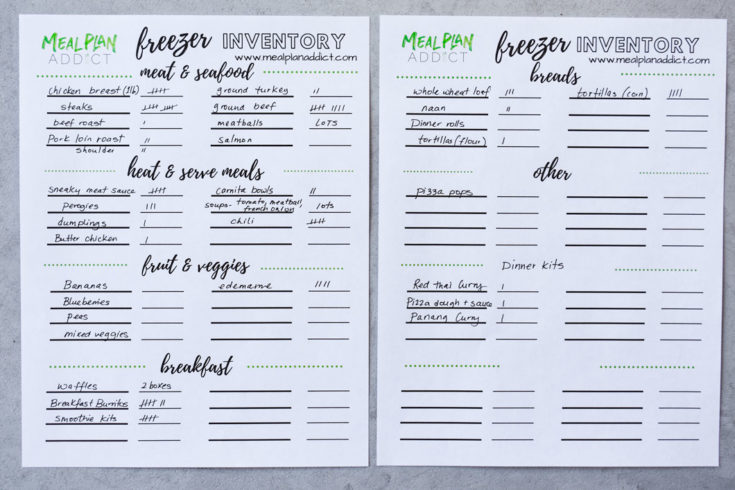 MEAL PLAN ADDICT freezer INVENTORY
www.mealplanaddict.com
meat & seafood
chicken breast (1lb) 𝍸 ground turkey II
steaks 𝍸 𝍸 ground beef 𝍸 IIII
beef roast I meatballs LOTS
Pork loin roast I salmon
shoulder II
heat & serve meals
sneaky meat sauce 𝍸 carnita bowls II
perogies III soups- tomato, meatball, lots
french onion
dumplings I chili 𝍸
Butter chicken I
fruit & veggies
Bananas edamame IIII
Blueberries
peas
mixed veggies
breakfast
waffles 2 boxes
Breakfast Burritos 𝍸 II
smoothie kits 𝍸
MEAL PLAN ADDICT freezer INVENTORY
www.mealplanaddict.com
breads
whole wheat loaf III tortillas (corn) IIII
naan II
Dinner rolls
tortillas (flour) I
other
pizza pops
Dinner kits
Red thai Curry I
Pizza dough + sauce I
Panang Curry I